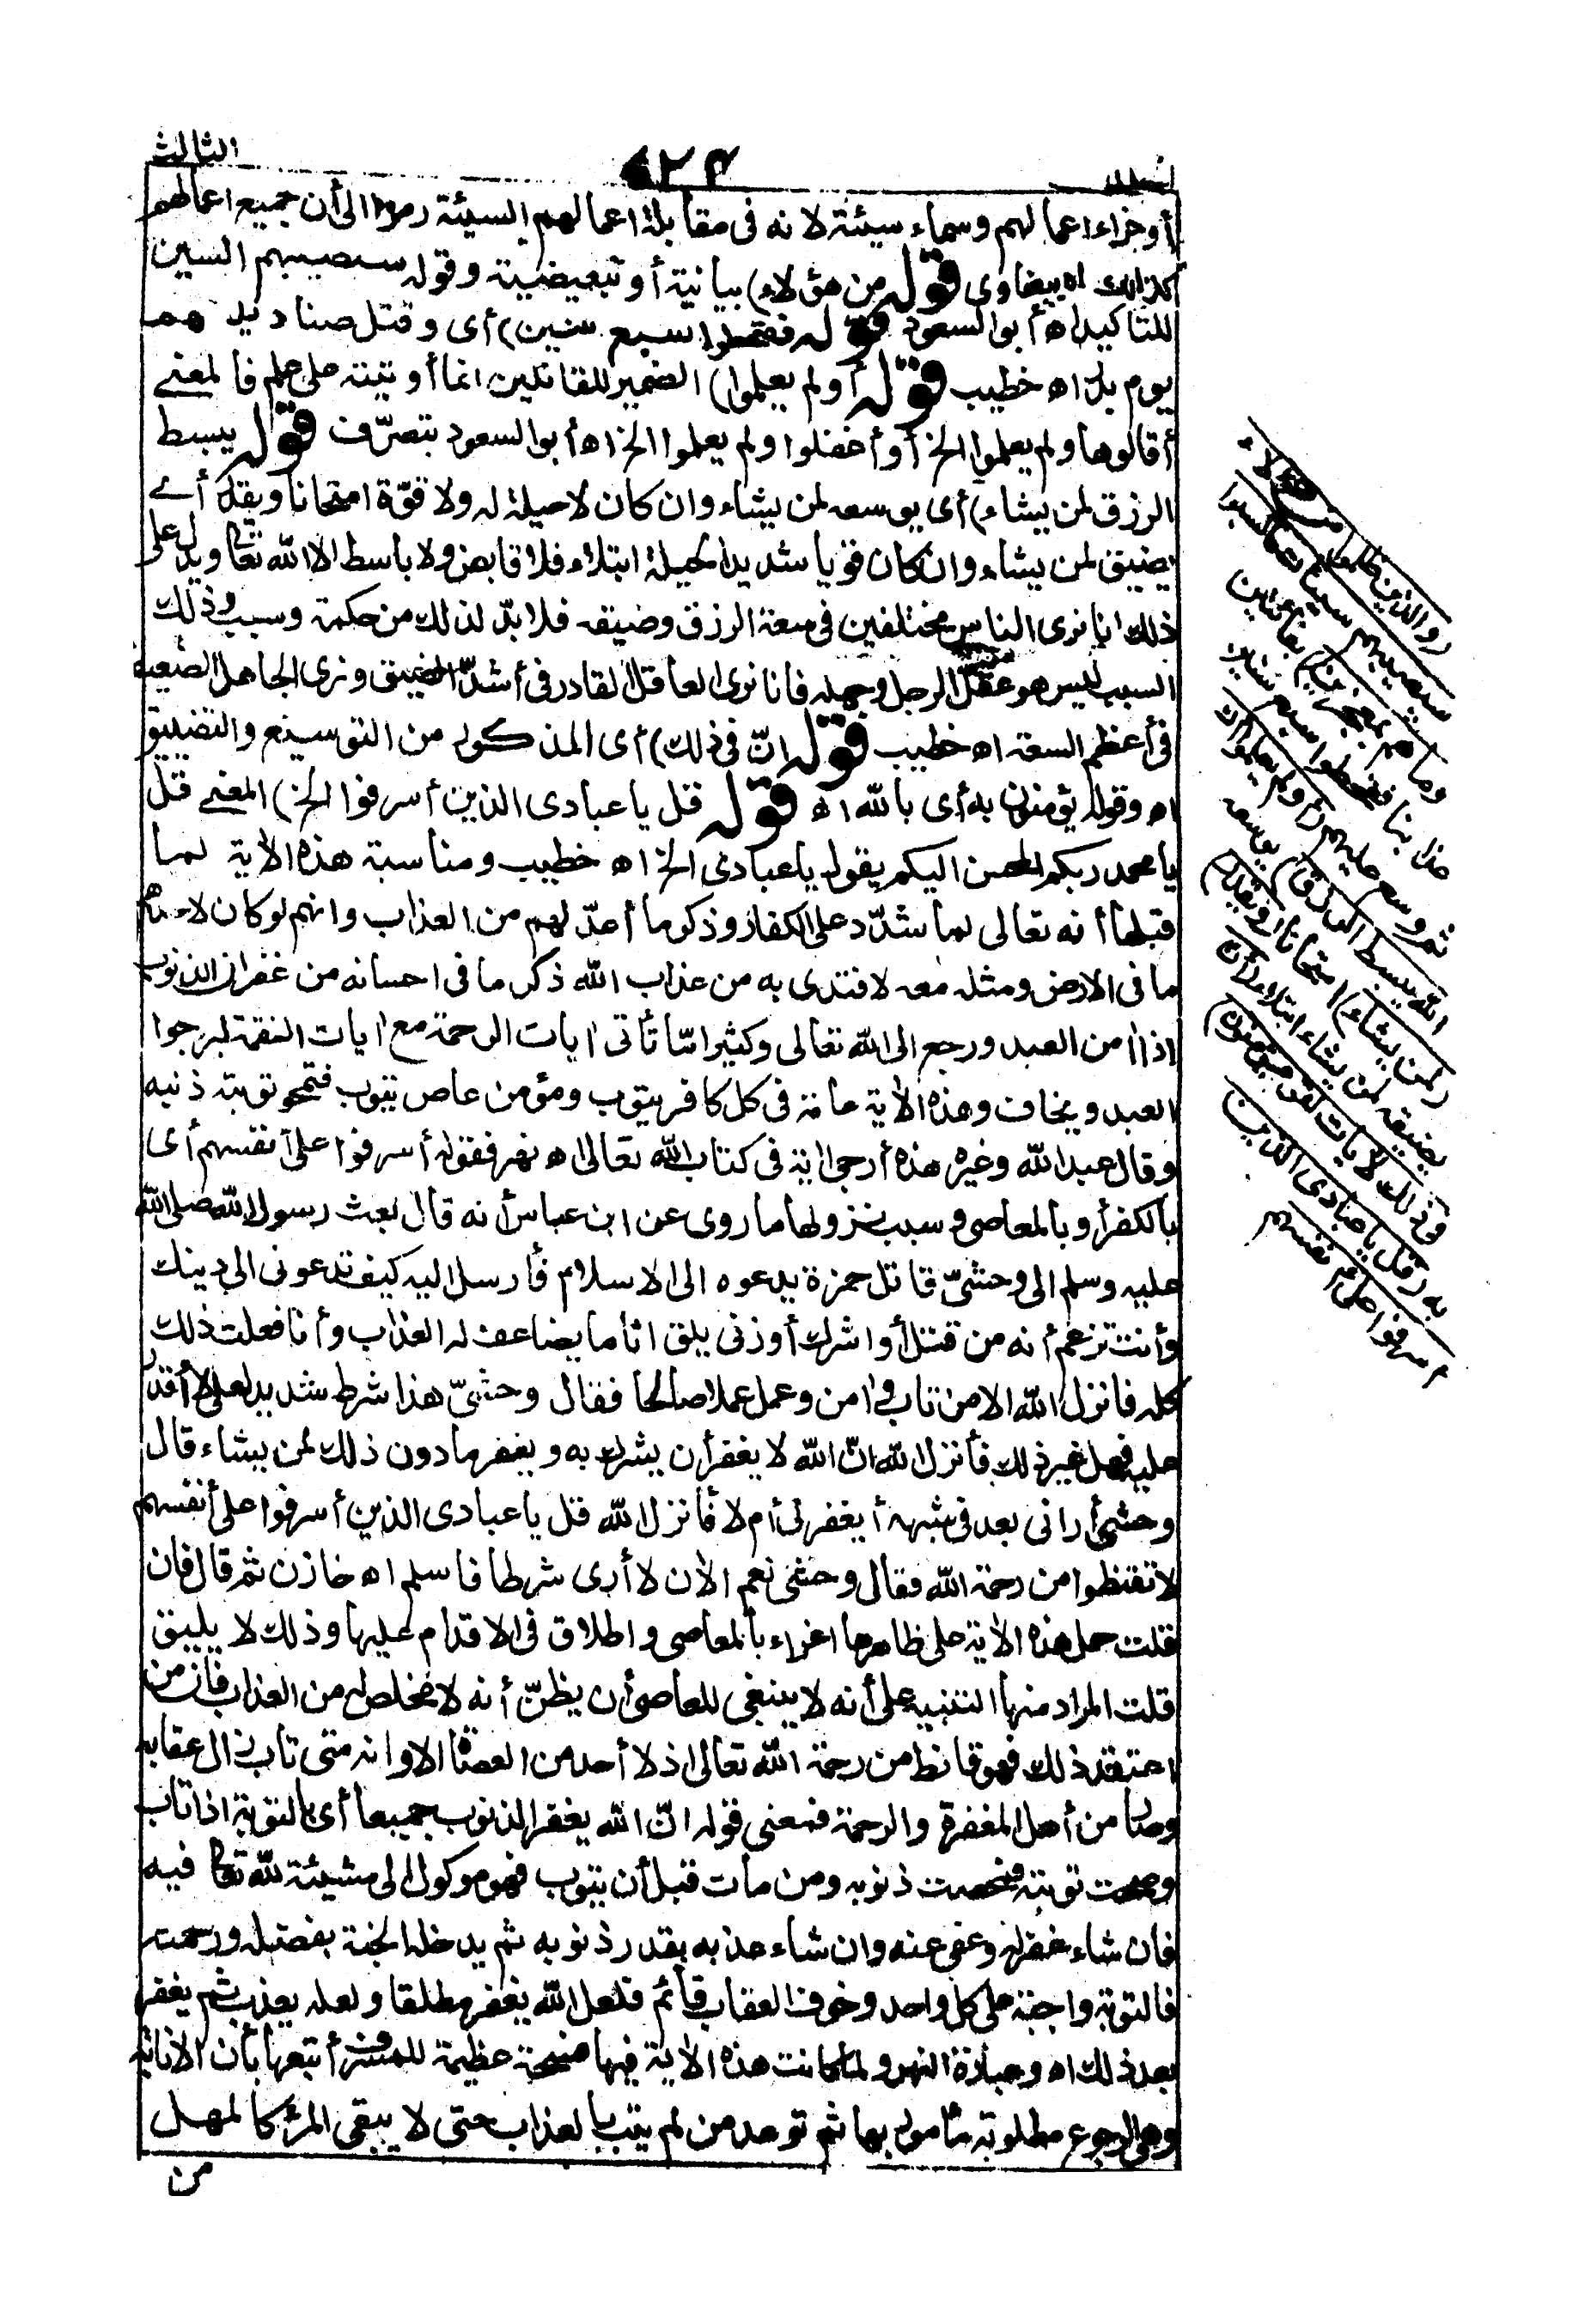 الثالث
أو جزاء اعمالهم وسماه سيئة لانه فى مقابلة اعمالهم السيئة رمزا الى أن جميع اعمالهم
كذلك اه بيضاوى قوله من هؤلاء) بيانية أو تبعيضية وقوله سيصيبهم السين
للتاكيد اه أبو السعود قوله فقحطوا سبع سنين) أى وقتل صناديدهم
يوم بدر اه خطيب قوله أولم يعلموا) الضمير للقائلين انما أوتيته على علم فالمعنى
أقالوها ولم يعلموا الخ أو أغفلوا ولم يعلموا الخ اه أبو السعود بتصرّف قوله يبسط
الرزق لمن يشاء) أى يوسعه لمن يشاء وان كان لا حيلة له ولا قوّة امتحانا ويقدر أى
يضيق لمن يشاء وان كان قويا شديد الحيلة ابتلاء فلا قابض ولا باسط الا الله تعالى ويدل على
ذلك انا نرى الناس مختلفين فى سعة الرزق وضيقه فلا بدّ لذلك من حكمة وسبب وذلك
السبب ليس هو عقل الرجل وجهله فانا نرى العاقل القادر فى أشدّ الضيق ونرى الجاهل الضعيف
فى أعظم السعة اه خطيب قوله انّ فى ذلك) أى المذكور من التوسيع والتضييق
اه وقوله يؤمنون به أى بالله اه قوله قل يا عبادى الذين أسرفوا الخ) المعنى قل
يا محمد ربكم المحسن اليكم يقول يا عبادى الخ اه خطيب ومناسبة هذه الآية لما
قبلها أنه تعالى لما شدّد على الكفار وذكر ما أعدّ لهم من العذاب وانهم لو كان لاحدهم
ما فى الارض ومثله معه لافتدى به من عذاب الله ذكر ما فى احسانه من غفران الذنوب
اذا امن العبد ورجع الى الله تعالى وكثيرا مّا تأتى ايات الرحمة مع ايات النقمة ليرجوا
العبد ويخاف وهذه الآية عامة فى كل كافر يتوب ومؤمن عاص يتوب فتمحو توبته ذنبه
وقال عبد الله وغيره هذه أرجى اية فى كتاب الله تعالى اه نهر فقوله أسرفوا على أنفسهم أى
بالكفر أو بالمعاصى وسبب نزولها ما روى عن ابن عباس أنه قال بعث رسول الله صلى الله
عليه وسلم الى وحشىّ قاتل حمزة يدعوه الى الاسلام فأرسل اليه كيف تدعونى الى دينك
وأنت تزعم أنه من قتل أو اشرك أو زنى يلق اثاما يضاعف له العذاب وأنا فعلت ذلك
كله فانزل الله الا من تاب وامن وعمل عملا صالحا فقال وحشىّ هذا شرط شديد لعلى لا أقدر
عليه فهل غير ذلك فأنزل الله انّ الله لا يغفر أن يشرك به ويغفر ما دون ذلك لمن يشاء قال
وحشى أرانى بعد فى شبهة أيغفر لى أم لا فأنزل الله قل يا عبادى الذين أسرفوا على أنفسهم
لا تقنطوا من رحمة الله فقال وحشى نعم الآن لا أرى شرطا فاسلم اه خازن ثم قال فان
قلت حمل هذه الآية على ظاهرها اغراء بالمعاصى واطلاق فى الاقدام عليها وذلك لا يليق
قلت المراد منها التنبيه على أنه لا ينبغى للعاصى أن يظنّ أنه لا مخلص له من العذاب فان من
اعتقد ذلك فهو قانط من رحمة الله تعالى اذ لا أحد من العصاة الا وانه متى تاب زال عقابه
وصار من أهل المغفرة والرحمة فمعنى قوله انّ الله يغفر الذنوب جميعا أى بالتوبة اذا تاب
وصحت توبته محصت ذنوبه ومن مات قبل أن يتوب فهو موكول الى مشيئة الله تعالى فيه
فان شاء غفر له وعفى عنه وان شاء عذبه بقدر ذنوبه ثم يدخله الجنة بفضله ورحمته
فالتوبة واجبة على كل واحد وخوف العقاب قائم فلعل الله يغفر مطلقا ولعله يعذب ثم يغفر
بعد ذلك اه وعبارة النهر ولما كانت هذه الآية فيها فسحة عظيمة للمسرف أتبعها بأن الانابة
وهى الرجوع مطلوبة مأمور بها ثم توعد من لم يتب بالعذاب حتى لا يبقى المرء كالمهمل
من
(والذين ظلموا من هؤلاء
سيصيبهم سيئات ما كسبوا
وما هم بمعجزين) بفائتين
عذابنا فقحطوا سبع سنين
ثم وسع عليهم (أولم يعلموا أن
الله يبسط الرزق) يوسعه
(لمن يشاء) امتحانا (ويقدر)
يضيقه لمن يشاء ابتلاء (ان
فى ذلك لآيات لقوم يؤمنون)
به (قل يا عبادى الذين
أسرفوا على أنفسهم